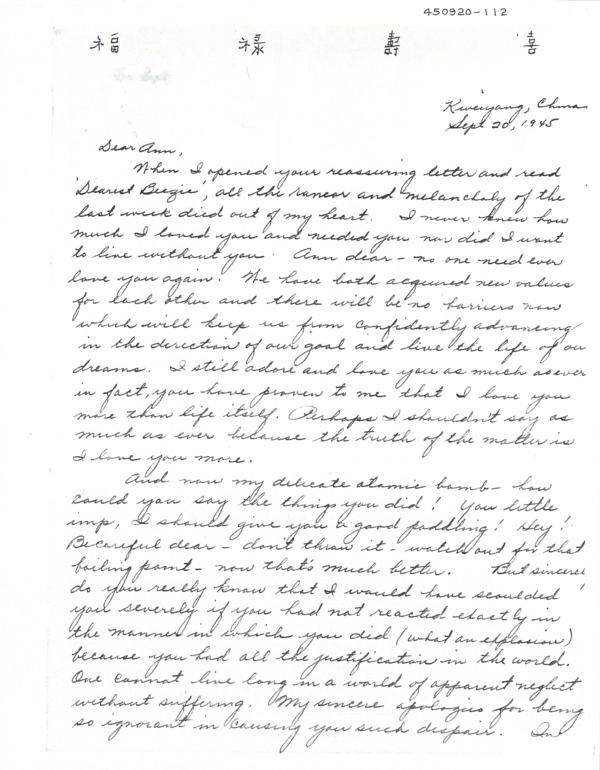 450920-112
福 祿 壽 喜
Kweiyang, China
Sept 20, 1945
Dear Ann,
When I opened your reassuring letter and read
'Dearest Beezie', all the rancor and melancholy of the
last week died out of my heart. I never knew how
much I loved you and needed you nor did I want
to live without you. Ann dear - no one need ever
love you again. We have both acquired new values
for each other and there will be no barriers now
which will keep us from confidently advancing
in the direction of our goal and live the life of our
dreams. I still adore and love you as much as ever
in fact, you have proven to me that I love you
more than life itself. Perhaps I shouldn't say as
much as ever because the truth of the matter is
I love you more.
And now my delicate atomic bomb - how
could you say the things you did! You little
imp, I should give you a good paddling! Hey!
Be careful dear - don't throw it - watch out for that
boiling point - now that's much better. But sincerel
do you really know that I would have scoulded
you severely if you had not reacted exactly in
the manner in which you did (what an explosion)
because you had all the justification in the world.
One cannot live long in a world of apparent neglect
without suffering. My sincere apologies for being
so ignorant in causing you such despair. In